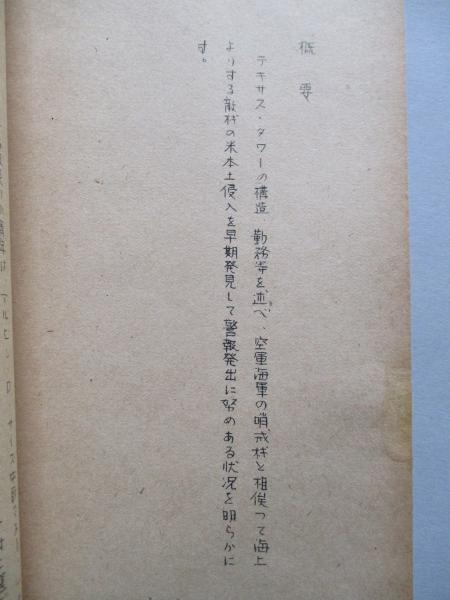 概要
テキサス・タワーの構造、勤務等を、述べ、空軍海軍の哨戒机と相俟つて海上
よりする敵机の米本土侵入を早期発見して警報発出に努めある状況を明らかに
す。